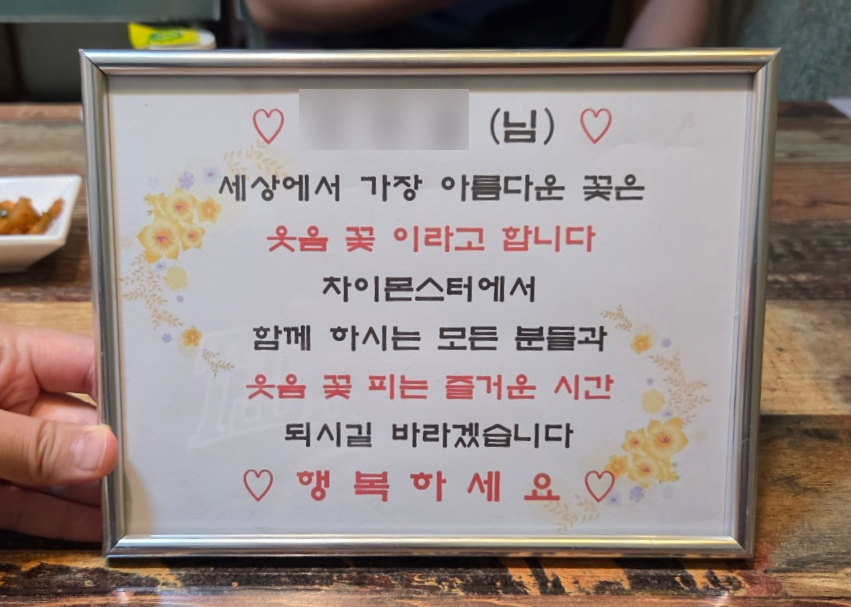 ♡ (님) ♡
세상에서 가장 아름다운 꽃은
웃음 꽃 이라고 합니다
차이몬스터에서
함께 하시는 모든 분들과
웃음 꽃 피는 즐거운 시간
되시길 바라겠습니다
♡ 행복하세요 ♡